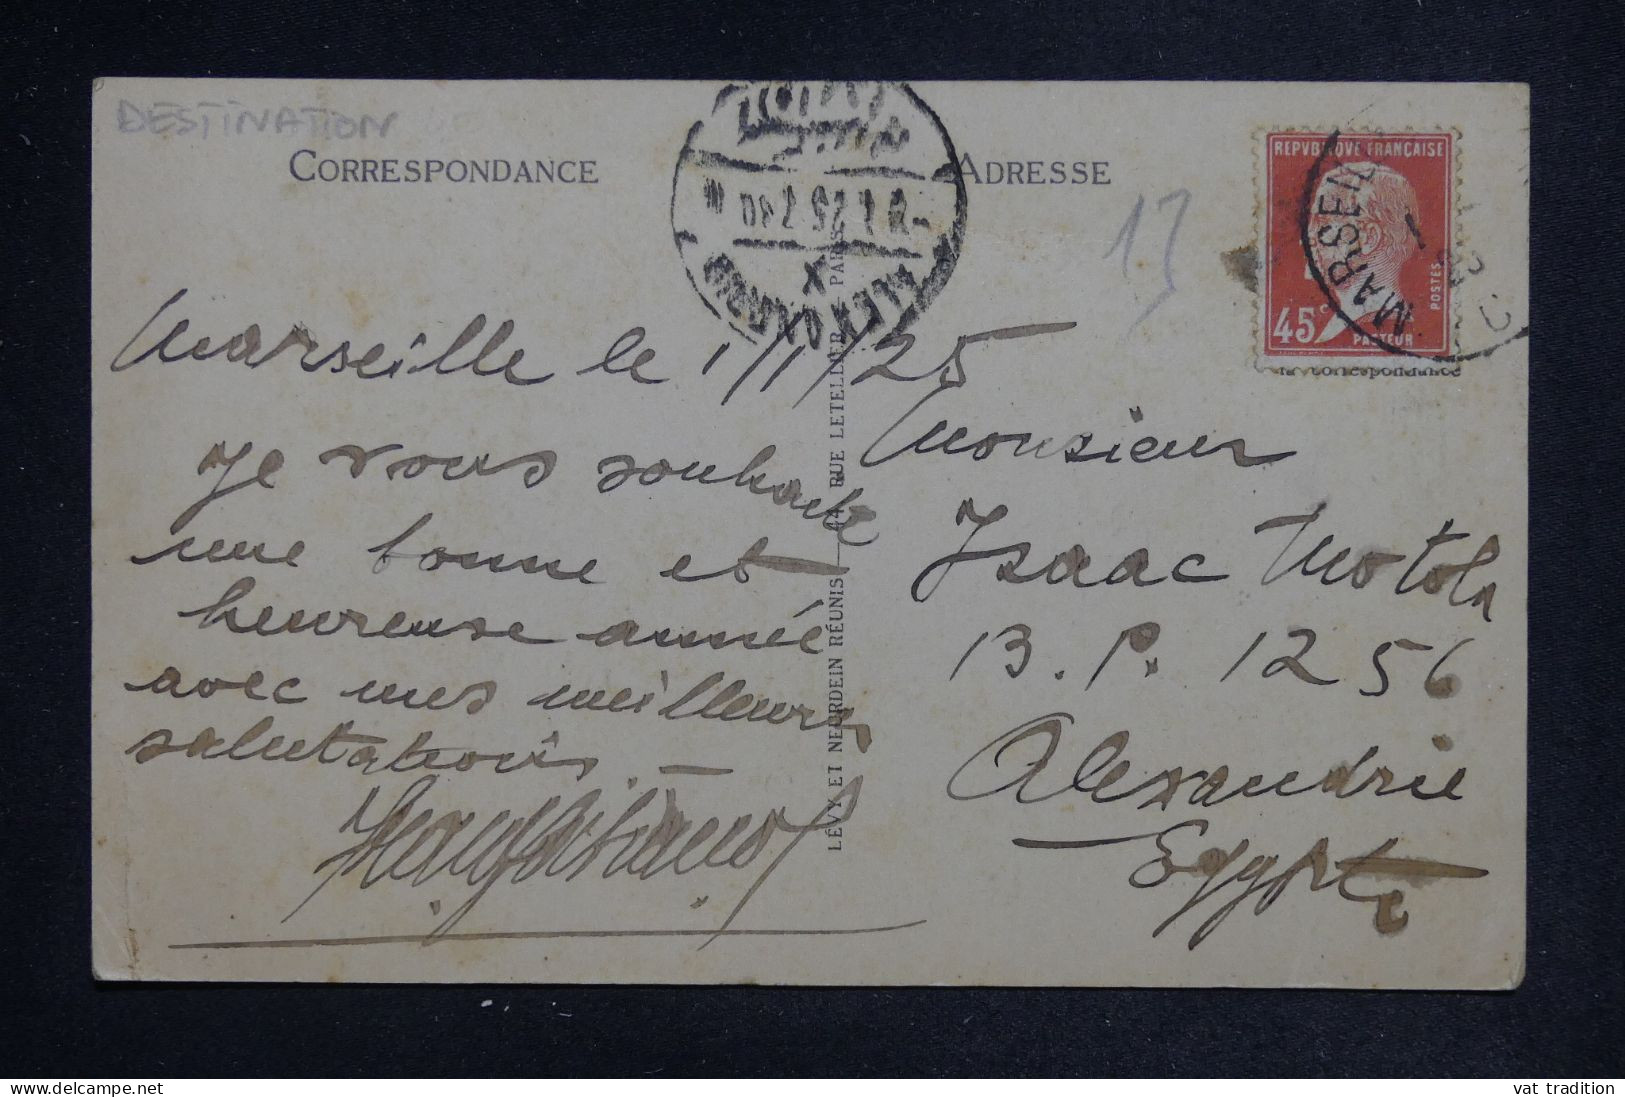 DESTINATION
CORRESPONDANCE
ADRESSE
13
REPVBLIQVE FRANÇAISE
POSTES
45c
PASTEUR
MARSEILLE
la correspondance
ALEXANDRIA
Marseille le 1/1/25
Je vous souhaite
une bonne et
heureuse année
avec mes meilleurs
salutations. —
LÉVY ET NEURDEIN RÉUNIS — 44, RUE LETELLIER, PARIS
Monsieur
Isaac Motola
B.P. 1256
Alexandrie
Egypte
vat tradition